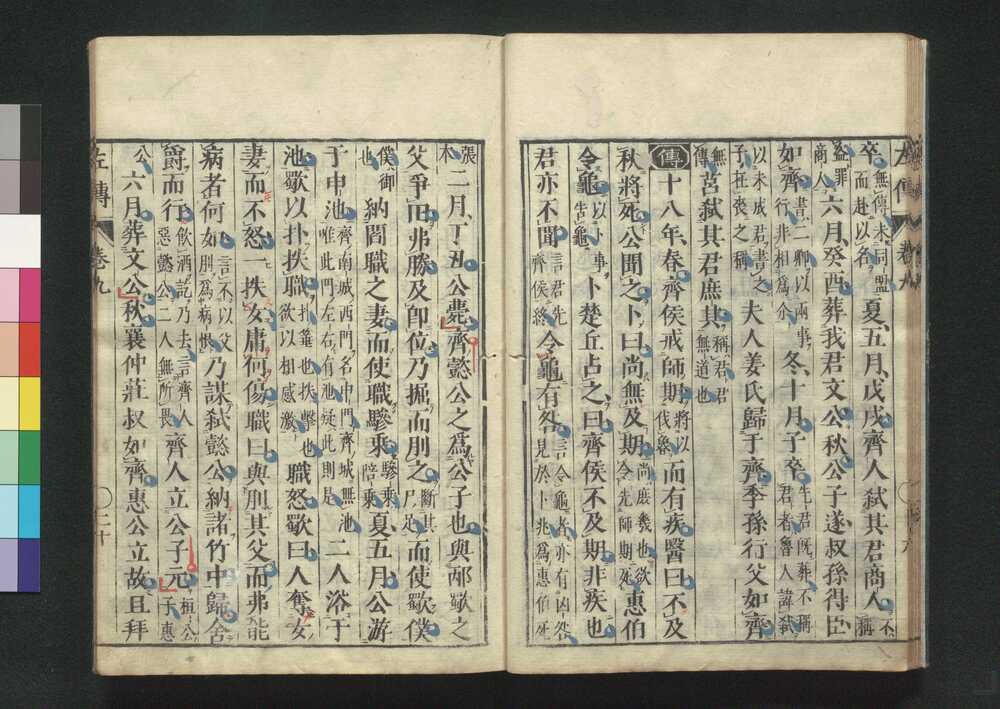 卒無傳未同盟而赴以名夏五月戊戌齊人弒其君商人不稱
盜罪商人六月癸酉葬我君文公秋公子遂叔孫得臣
如齊書二卿以兩事行非相爲介冬十月子卒先君旣葬不稱君者魯人諱弒
以未成君書之子在喪之稱夫人姜氏歸于齊季孫行父如齊
無傳莒弒其君庶其稱君君無道也
傳十八年春齊侯戒師期將以伐魯而有疾醫曰不及
秋將死公聞之卜曰尚無及期尚庶幾也欲令先師期死惠伯
令龜以卜事告龜卜楚丘占之曰齊侯不及期非疾也
君亦不聞言君先齊侯終令龜有咎言令龜者亦有凶咎見於卜兆爲惠伯死
張本二月丁丑公薨齊懿公之爲公子也與邴歜之
父爭田弗勝及卽位乃掘而刖之斷其尸足而使歜僕
僕御也納閻職之妻而使職驂乘驂乘陪乘夏五月公游
于申池齊南城西門名申門齊城無池唯此門左右有池疑此則是二人浴于
池歜以扑抶職扑箠也抶擊也欲以相感激職怒歜曰人奪女
妻而不怒一抶女庸何傷職曰與刖其父而弗能
病者何如言不以父刖爲病恨乃謀弒懿公納諸竹中歸舍
爵而行飮酒訖乃去言齊人惡懿公二人無所畏齊人立公子元桓公子惠
公六月葬文公秋襄仲莊叔如齊惠公立故且拜
左傳
卷九
二十